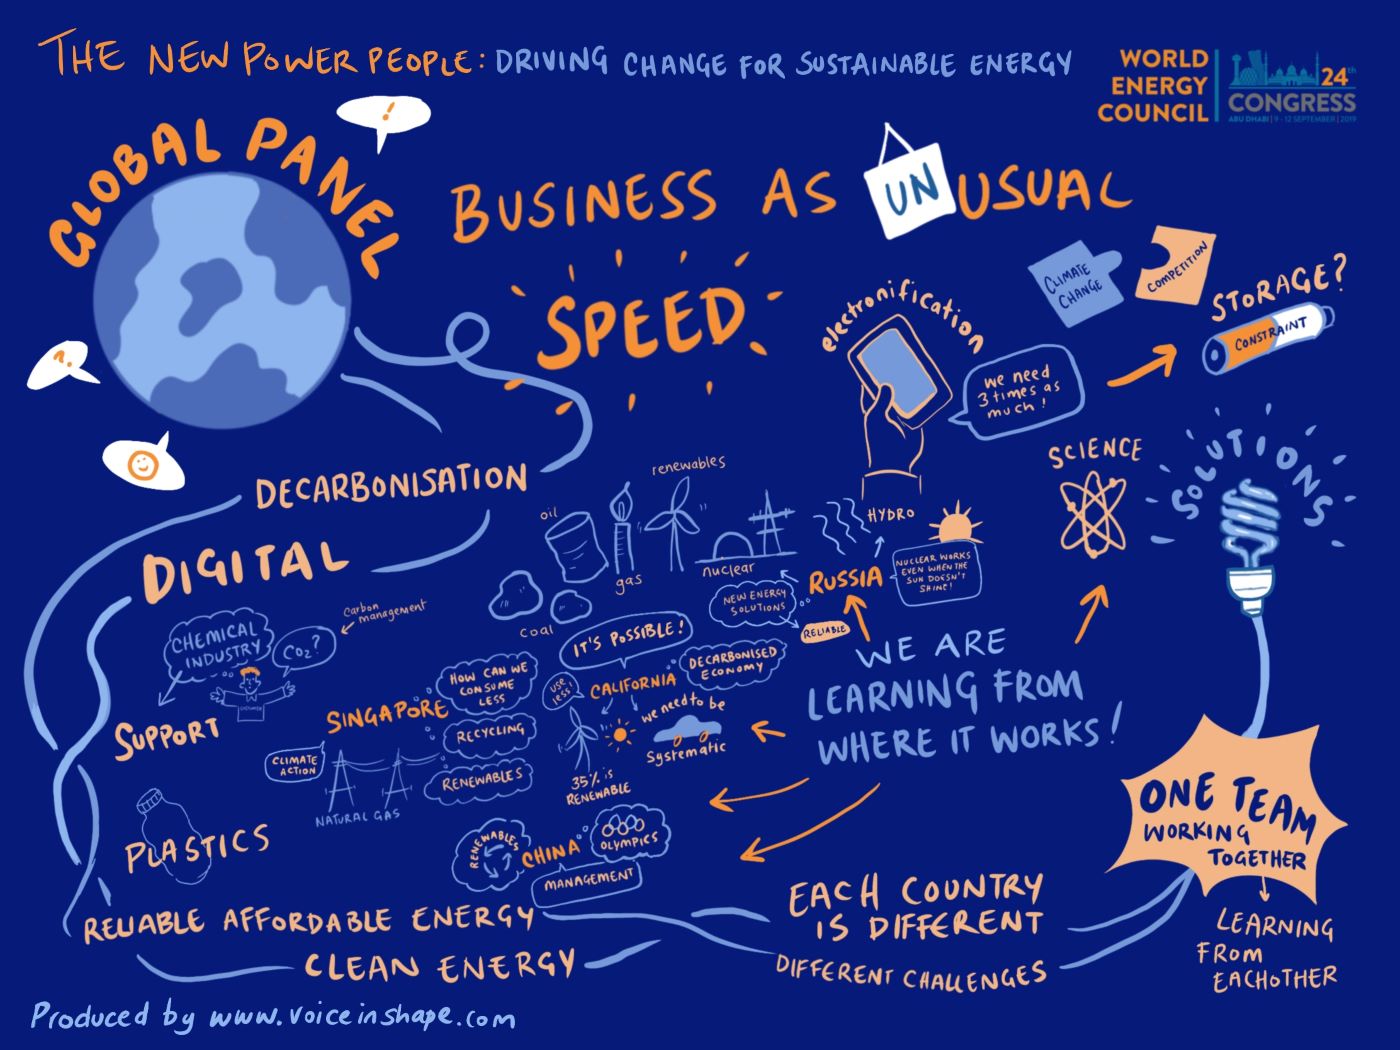 THE NEW POWER PEOPLE: DRIVING CHANGE FOR SUSTAINABLE ENERGY
WORLD
ENERGY
COUNCIL
24th
CONGRESS
ABU DHABI | 9 - 12 SEPTEMBER | 2019
GLOBAL PANEL
!
?
BUSINESS AS UNUSUAL
SPEED
electronification
we need
3 times as
much!
CLIMATE
CHANGE
COMPETITION
STORAGE?
CONSTRAINT
SCIENCE
SOLUTIONS
DECARBONISATION
DIGITAL
oil
renewables
gas
nuclear
coal
HYDRO
RUSSIA
NUCLEAR WORKS
EVEN WHEN THE
SUN DOESN'T
SHINE!
NEW ENERGY
SOLUTIONS
RELIABLE
Carbon
management
CHEMICAL
INDUSTRY
CO2?
CUSTOMER
SUPPORT
SINGAPORE
HOW CAN WE
CONSUME
LESS
RECYCLING
RENEWABLES
CLIMATE
ACTION
NATURAL GAS
IT'S POSSIBLE!
USE
less
CALIFORNIA
DECARBONISED
ECONOMY
we need to be
Systematic
35% is
RENEWABLE
WE ARE
LEARNING FROM
WHERE IT WORKS!
PLASTICS
RENEWABLES
CHINA
OLYMPICS
MANAGEMENT
ONE TEAM
WORKING
TOGETHER
LEARNING
FROM
EACHOTHER
RELIABLE AFFORDABLE ENERGY
CLEAN ENERGY
EACH COUNTRY
IS DIFFERENT
DIFFERENT CHALLENGES
Produced by www.voiceinshape.com